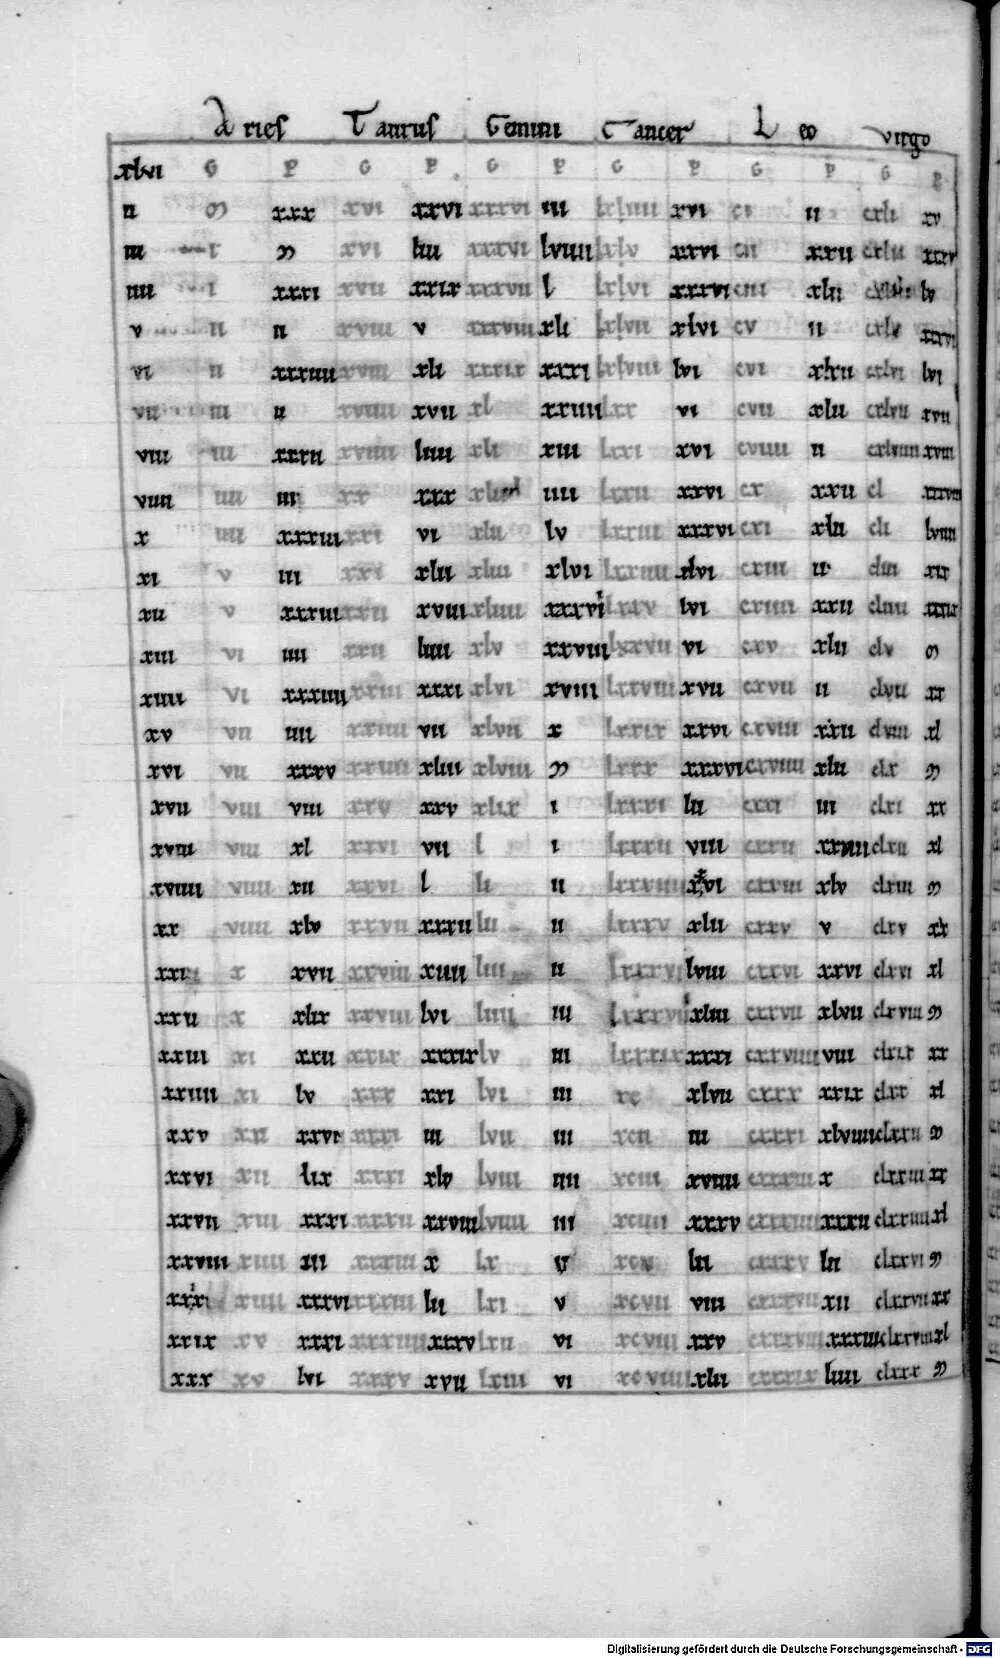 Aries Taurus Gemini Cancer Leo virgo
xlvi G P G P G P G P G P G P
ii ൭ xxx xvi xxvi xxxvi iii lxliiii xvi ci ii cxli xv
iii i ൭ xvi liii xxxvi lviiii lxlv xxvi cii xxii cxlii xxxv
iiii i xxxi xvii xxix xxxvii l lxlvi xxxvi ciii xlii lv
v ii ii xviii v xxxviii xli lxlvii xlvi cv ii cxlv
vi ii xxxiiii xviii xli xxxix xxxi lxlviii lvi cvi xlxii cxlvi lvi
vii iii ii xviiii xvii xl xxiiii lxx vi cvii xlii cxlvii xvii
viii iii xxxii xviiii liiii xli xiii lxxi xvi cviiii ii cxlviiii xviii
viiii iiii iii xx xxx iiii lxxii xxvi cx xxii cl
x iiii xxxiii xxi vi xlii lv lxxiii xxxvi cxi xlii cli lviiii
xi v iii xxi xlii xliii xlvi lxxiiii xlvi cxiii ii cliii xix
xii v xxxiii xxii xviii xliiii xxxvi lxxv lvi cxiiii xxii cliiii xxxix
xiii vi iiii xxii liiii xlv xxviii lxxvii vi cxv xlii clv ൭
xiiii vi xxxiiii xxiii xxxi xlvi xviii lxxviii xvii cxvii ii clvii xx
xv vii iiii xxiiii vii xlvii x lxxix xxvi cxviii xxii clviii xl
xvi vii xxxv xxiiii xliii xlviii ൭ lxxx xxxvi cxviiii xlii clx ൭
xvii viii viii xxv xxv xlix i lxxxi lii cxxi iii clxi xx
xviii viii xl xxvi vii l i lxxxii viii cxxii xxiiii clxii xl
xviiii viiii xii xxvi l li ii lxxxiiii cxxiii xlv clxiii ൭
xx viiii xlv xxvii xxxii lii ii lxxxv xlii cxxv v clxv xx
xxi x xvii xxviii xiiii liii ii lxxxvi lviii cxxvi xxvi clxvi xl
xxii x xlix xxviii lvi liiii iii lxxxvii xliii cxxvii xlvii clxviii ൭
xxiii xi xxii xxix xxxix lv iii lxxxix xxxi cxxviiii viii clxix xx
xxiiii xi lv xxx xxi lvi iii xc xlvii cxxx xxix clxx xl
xxv xii xxvi xxxi iii lvii iii xcii iii cxxxi xlviiii clxxii ൭
xxvi xii lix xxxi xlv lviii iiii xciii xviiii cxxxiii x clxxiii xx
xxvii xiii xxxi xxxii xxviii lviiii iii xciiii xxxv cxxxiiii xxxii clxxiiii xl
xxviii xiiii iii xxxiii x lx v xcv lii cxxxv lii clxxvi ൭
xiiii xxxvi xxxiii lii lxi v xcvii viii cxxxvii xii clxxvii xx
xxix xv xxxi xxxiiii xxxv lxii vi xcviii xxv cxxxviii xxxiii clxxviii xl
xxx xv lvi xxxv xvii lxiii vi xcviiii xlii cxxxix liiii clxxx ൭
Digitalisierung gefördert durch die Deutsche Forschungsgemeinschaft - DFG